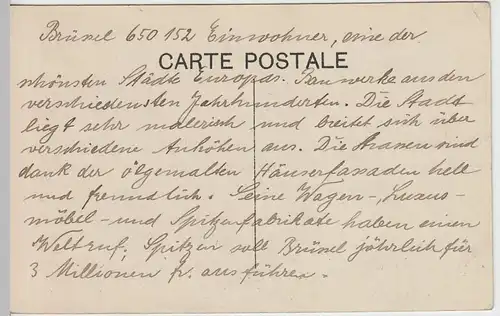 Brüssel 650 152 Einwohner, eine der
CARTE POSTALE
schönsten Städte Europas. Bauwerke aus den
verschiedensten Jahrhunderten. Die Stadt
liegt sehr malerisch und breitet sich über
verschiedene Anhöhen aus. Die Strassen sind
dank der ölgemalten Häuserfassaden hell
und freundlich. Seine Wagen-, Luxus-
möbel- und Spitzenfabrikate haben einen
Weltruf. Spitzen soll Brüssel jährlich für
3 Millionen fr. ausführen.